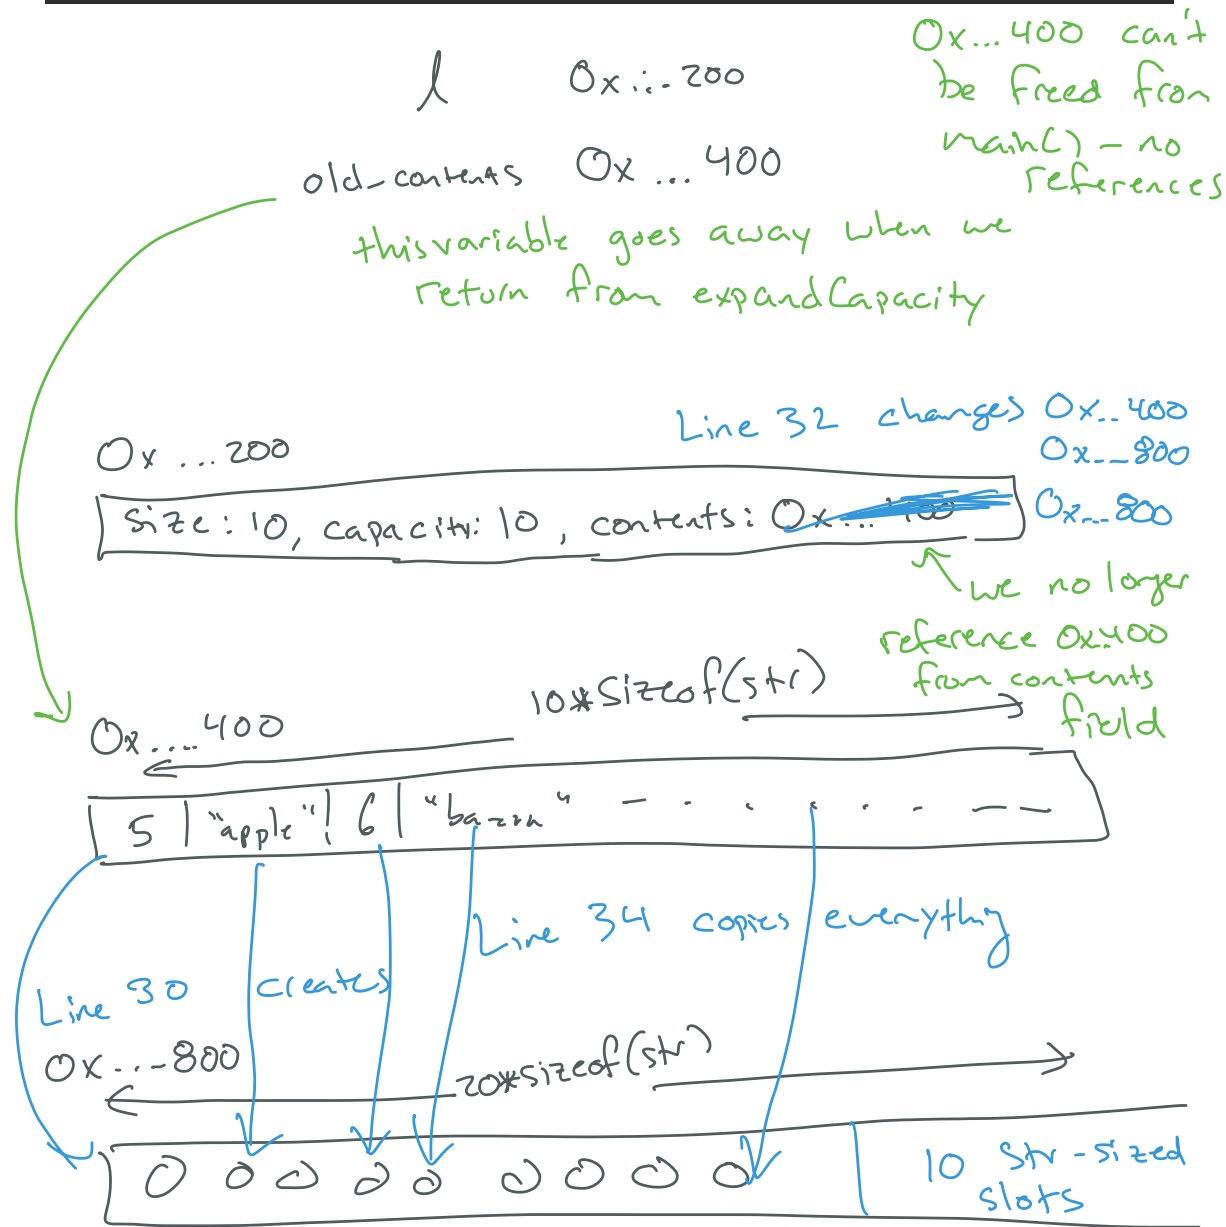 l 0x...200
0x...400 can't
be freed from
main() - no
references
old_contents 0x...400
this variable goes away when we
return from expandCapacity
Line 32 changes 0x..400
0x...800
0x...200
size: 10, capacity: 10, contents: 0x...400
0x...800
we no longer
reference 0x..400
from contents
field
10*sizeof(str)
0x....400
5 | "apple" | 6 | "
Line 34 copies everything
Line 30 creates
0x...-800
20*sizeof(str)
0 0 0 0 0 0 0 0 0
10 str-sized
slots